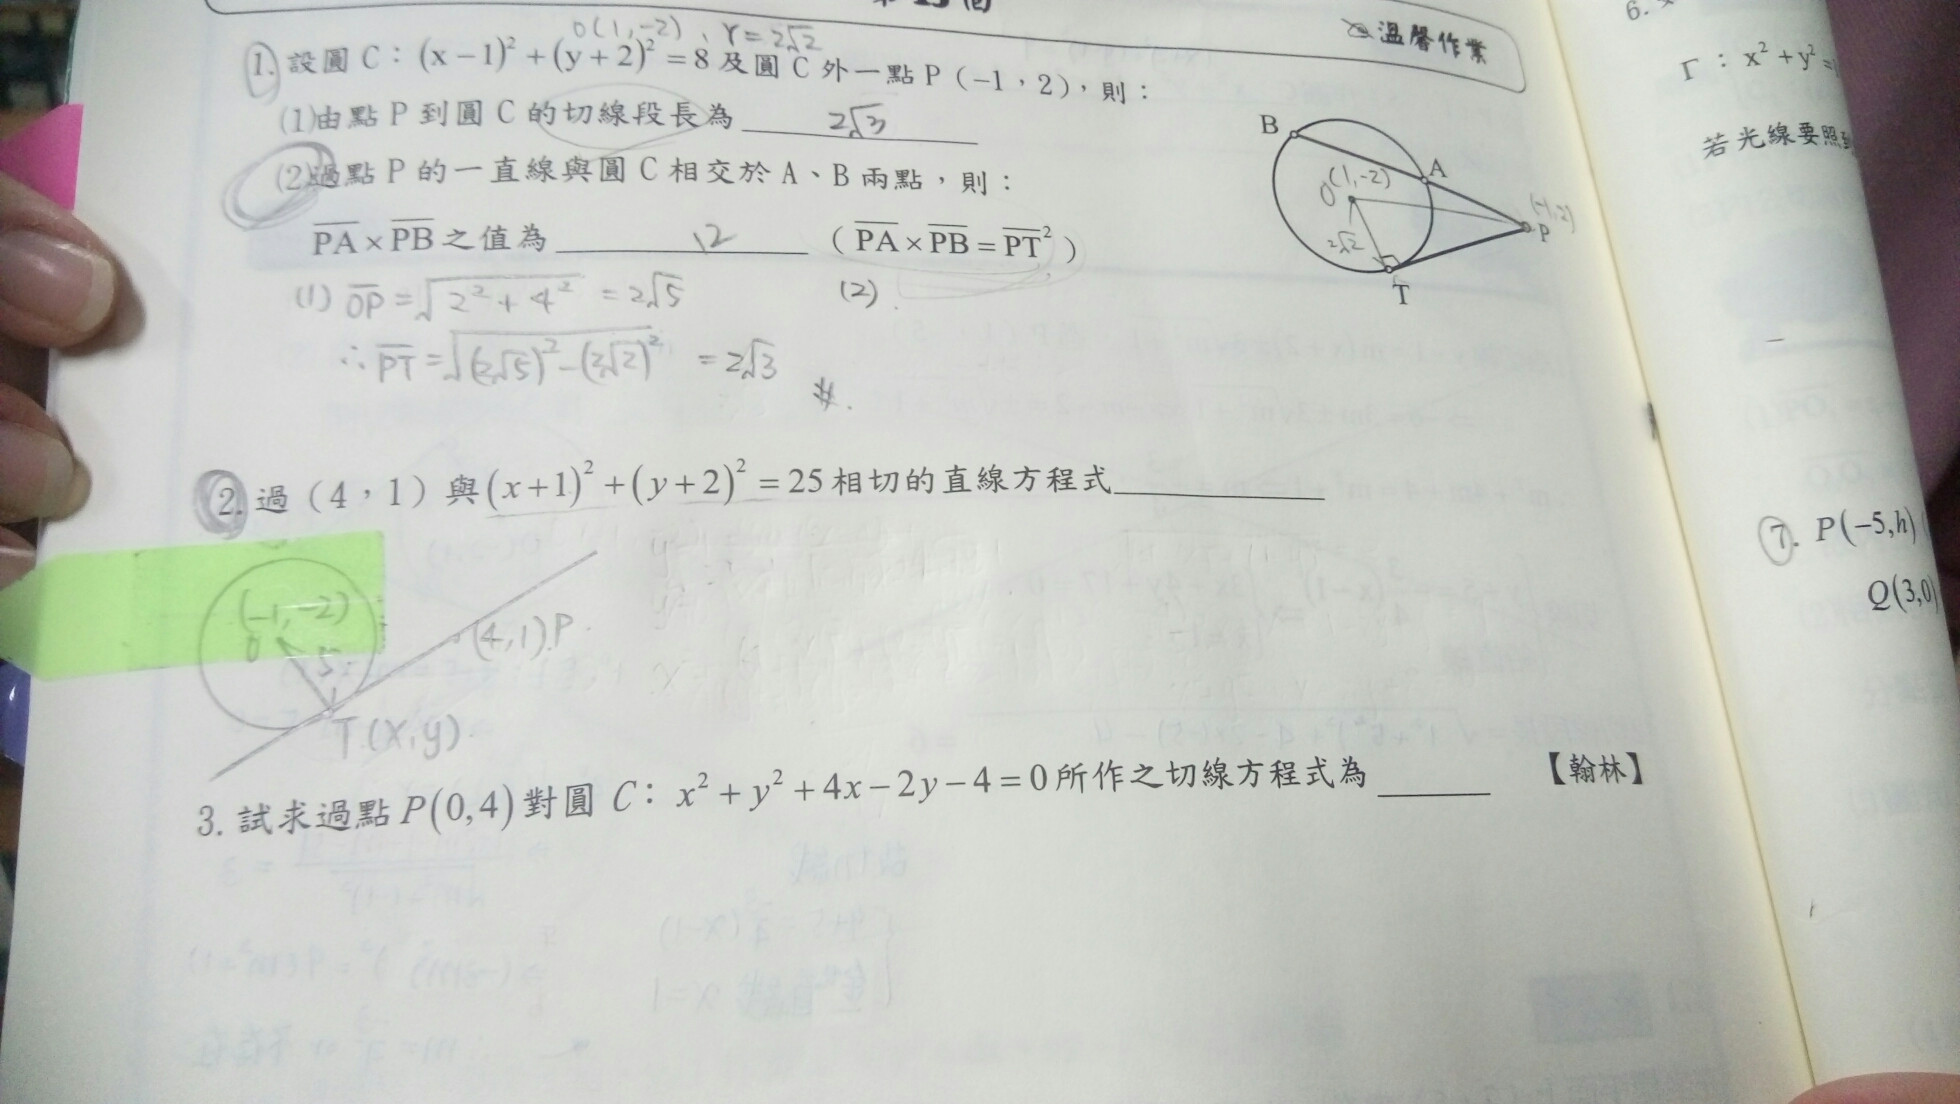 O(1,-2)、r=2√2
溫馨作業
1. 設圓 C：(x－1)²＋(y＋2)²＝8 及圓 C 外一點 P（－1，2），則：
(1)由點 P 到圓 C 的切線段長為 2√3
(2)過點 P 的一直線與圓 C 相交於 A、B 兩點，則：
PA×PB 之值為 12 （PA×PB=PT²）
B
A
O(1,-2)
2√2
(-1,2)
P
T
(1) OP=√2²+4² =2√5
(2)
∴PT=√(2√5)²-(2√2)² =2√3
#.
2. 過（4，1）與(x+1)²+(y+2)²=25相切的直線方程式
(-1,-2)
O
5
(4,1)P
T(x,y)
3. 試求過點P(0,4)對圓 C：x²+y²+4x−2y−4=0所作之切線方程式為 【翰林】
6.
Γ：x²+y²=
若光線要照
7. P(−5,h)
Q(3,0)